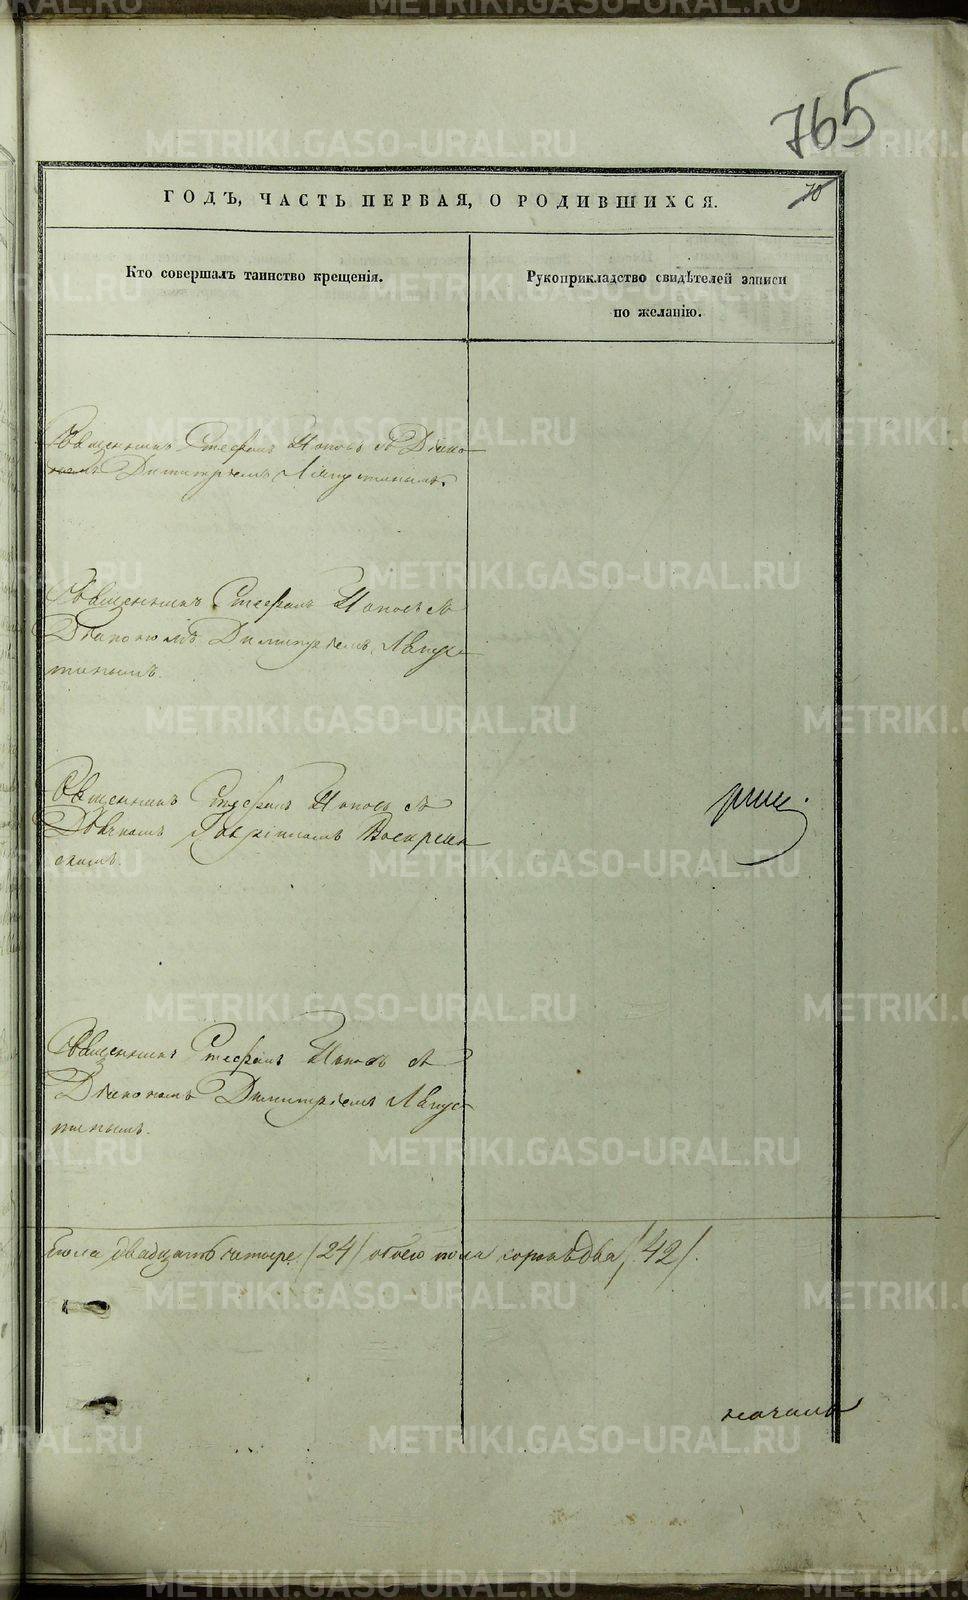 765
70
ГОДЪ, ЧАСТЬ ПЕРВАЯ, О РОДИВШИХСЯ.
Кто совершалъ таинство крещенія.
Рукоприкладство свидѣтелей записи
по желанію.
Священникъ Стефанъ Поповъ съ Діако
номъ Димитріемъ Августиновымъ.
Священникъ Стефанъ Поповъ съ
Діакономъ Димитріемъ Авгус
тиновымъ.
Священникъ Стефанъ Поповъ съ
Дьячкомъ Гавріиломъ Воскресен
скимъ.
Священникъ Стефанъ Поповъ съ
Діакономъ Димитріемъ Авгус
тиновымъ.
пола двадцать четыре /24/ обоего пола сорокъ два /42/.
METRIKI.GASO-URAL.RU